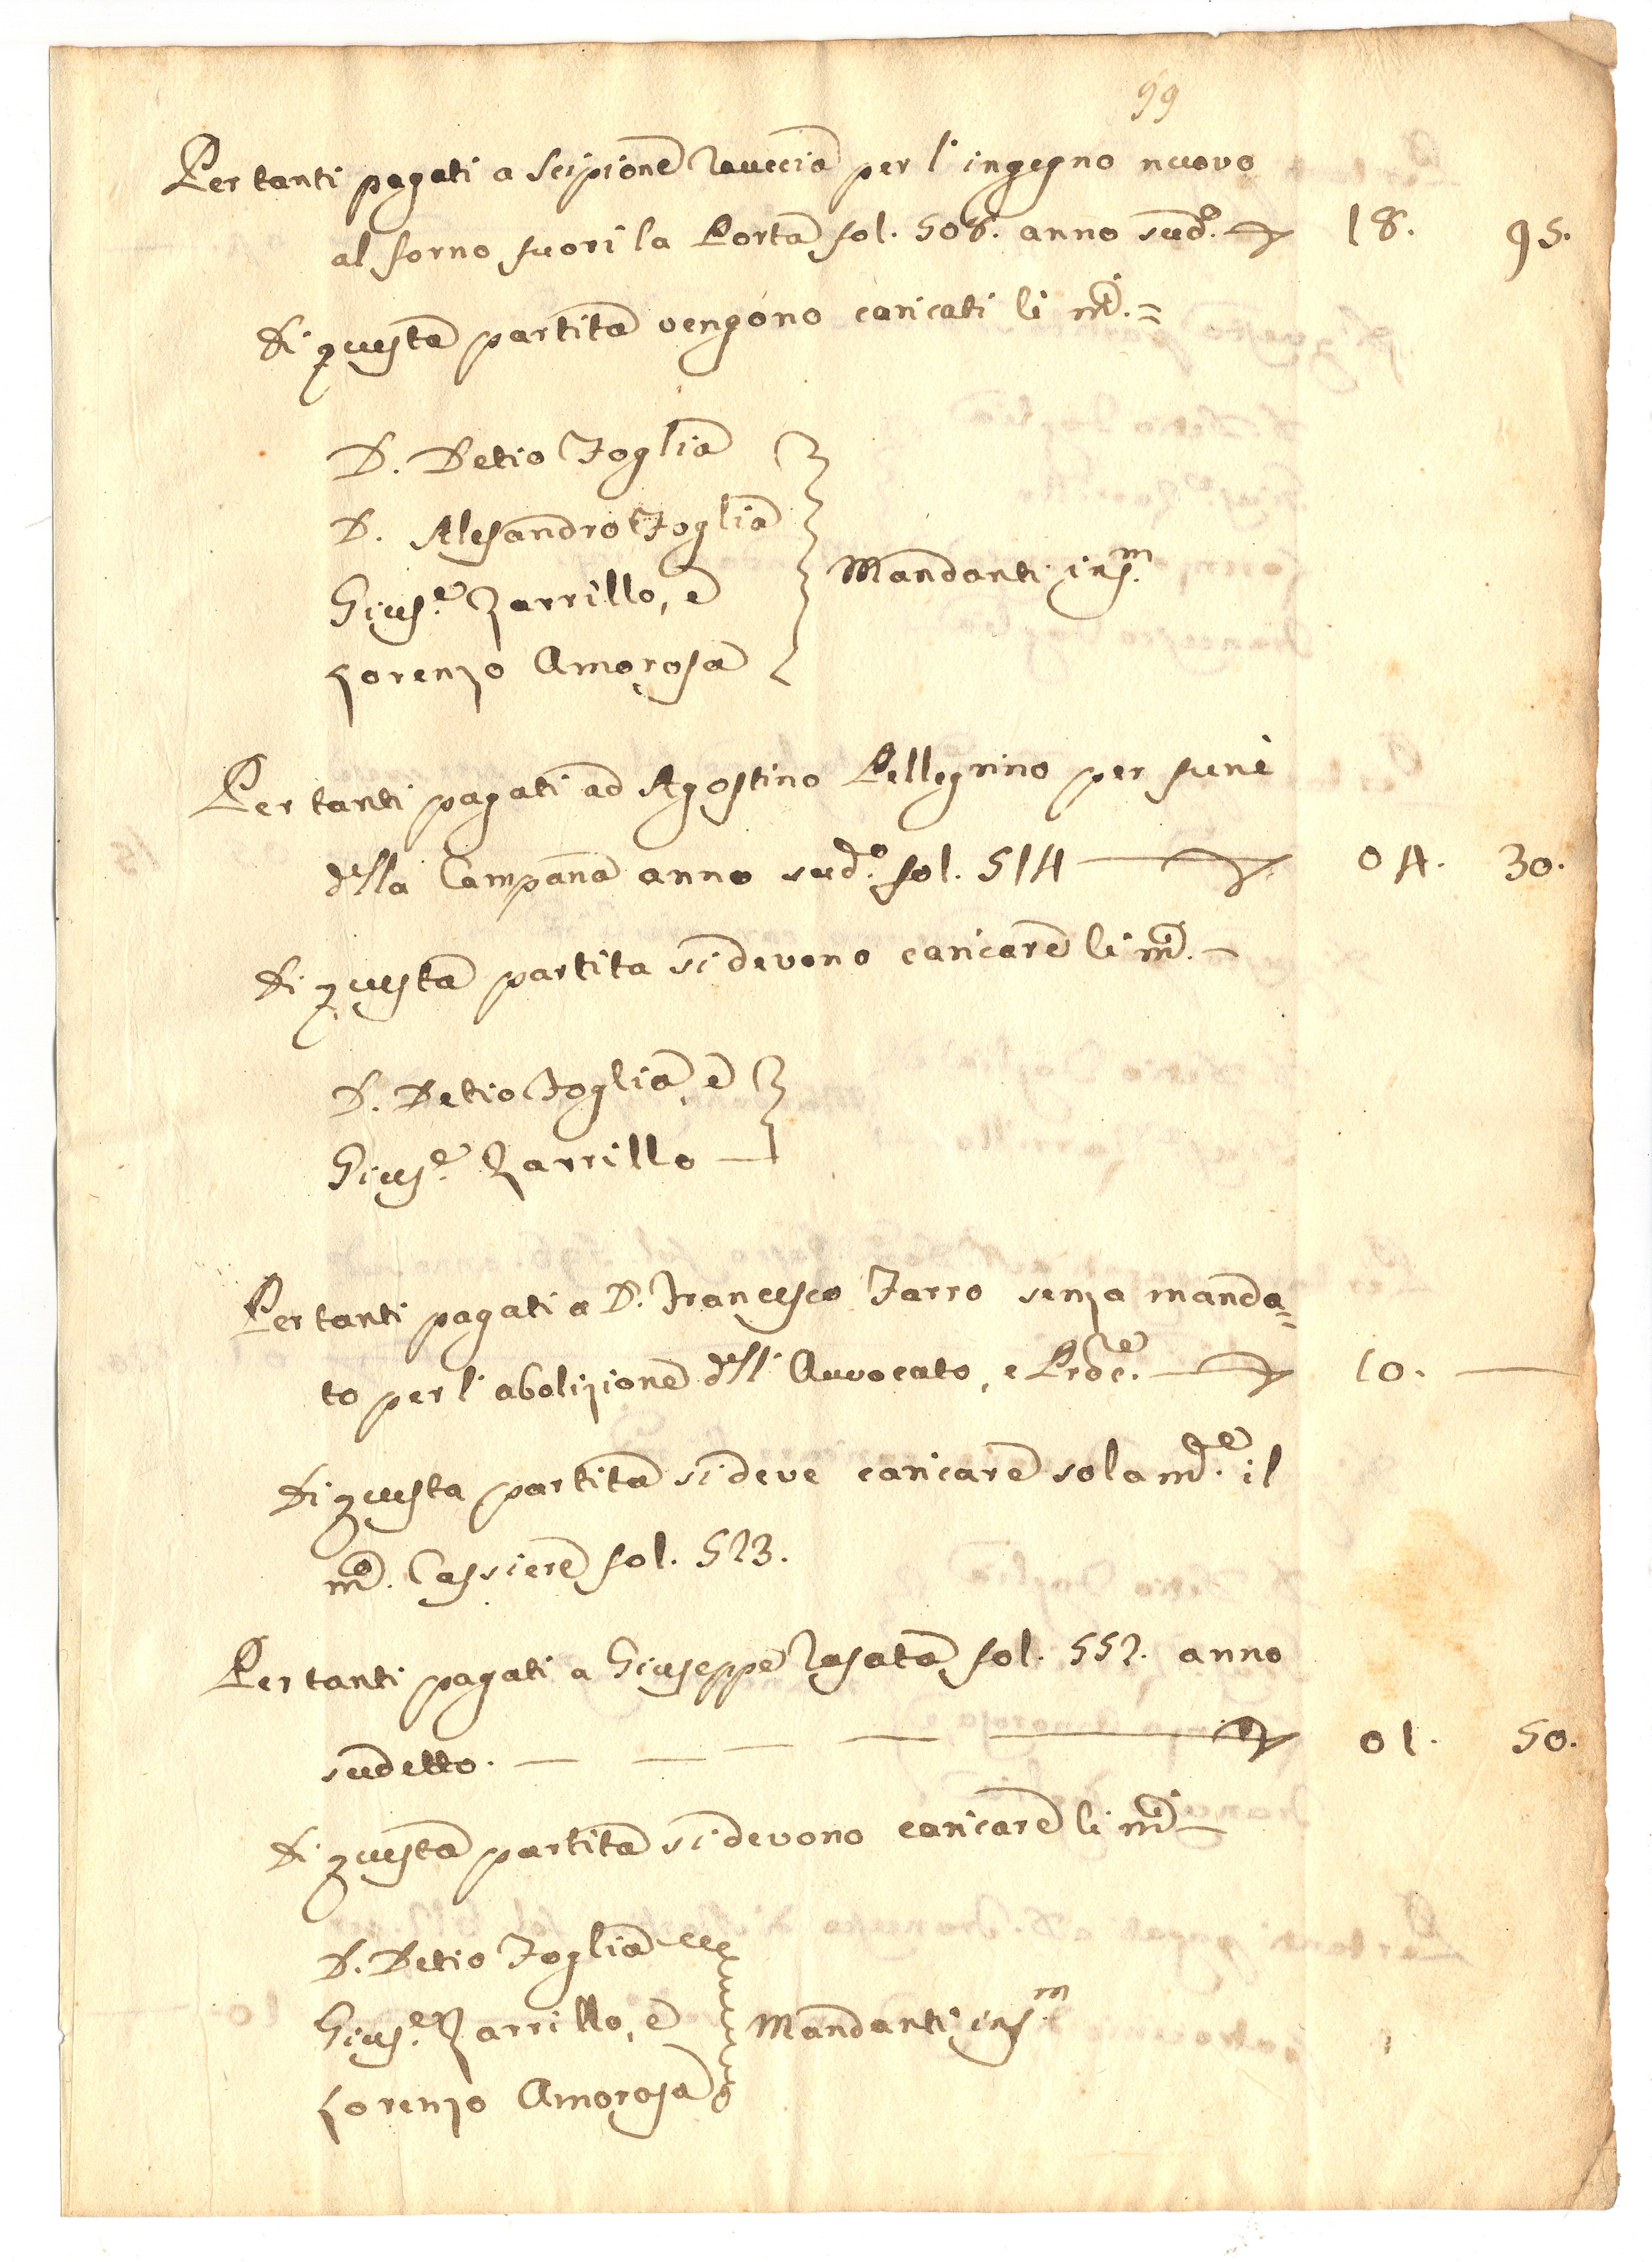 99
Per tanti pagati a Scipione per l'ingegno nuovo
al forno fuori la Porta fol. 508. anno sud.º 18. 95.
Di questa partita vengono caricati li md.i =
D. Detio Foglia
D. Alesandro Foglia
Gius.e Zarrillo, e
Mandanti ins.m
Lorenzo Amorosa
Per tanti pagati ad Agostino Pellegrino per fune
della Campana anno sud.º fol. 514 04. 30.
Di questa partita si devono caricare li md.i —
D. Detio Foglia, e
Gius.e Zarrillo —
Per tanti pagati a D. Francesco Farro senza manda=
to per l'abolizione dell'Avvocato, e Prãe. 10. —
Di questa partita si deve caricare solam.te il
md.º Cassiere fol. 523.
Per tanti pagati a Giuseppe fol. 552. anno
sudetto. — — — — — 01. 50.
Di questa partita si devono caricare li md.i —
D. Detio Foglia
Gius.e Zarrillo, e
Mandanti ins.m
Lorenzo Amorosa